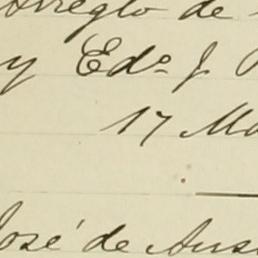 Arreglo de
y Edo. J.
17 Ma
José de Aus